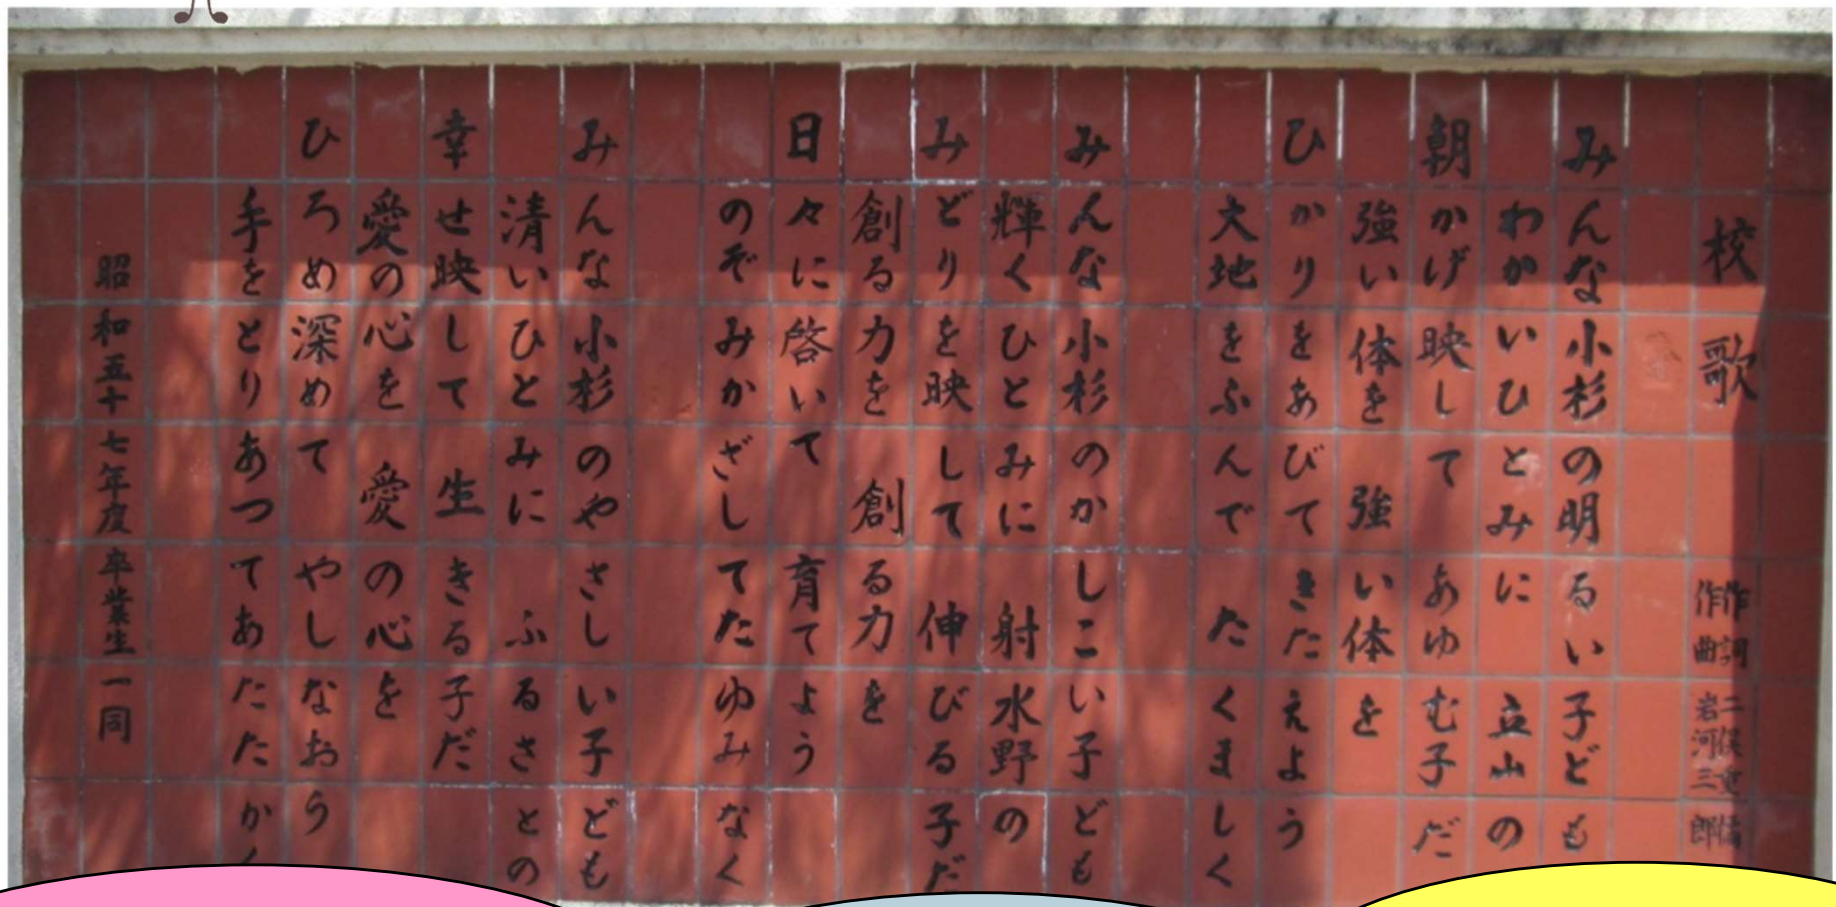 校歌
作詞 二俣
作曲 岩河三郎
みんな小杉の明るい子ども
わかいひとみに 立山の
朝かげ映して あゆむ子だ
強い体を 強い体を
ひかりをあびて きたえよう
大地をふんで たくましく
みんな小杉のかしこい子ども
輝くひとみに 射水野の
みどりを映して 伸びる子だ
創る力を 創る力を
日々に啓いて 育てよう
のぞみかざして たゆみなく
みんな小杉のやさしい子ども
清いひとみに ふるさとの
幸せ映して 生きる子だ
愛の心を 愛の心を
ひろめ深めて やしなおう
手をとりあつて あたたかく
昭和五十七年度 卒業生一同